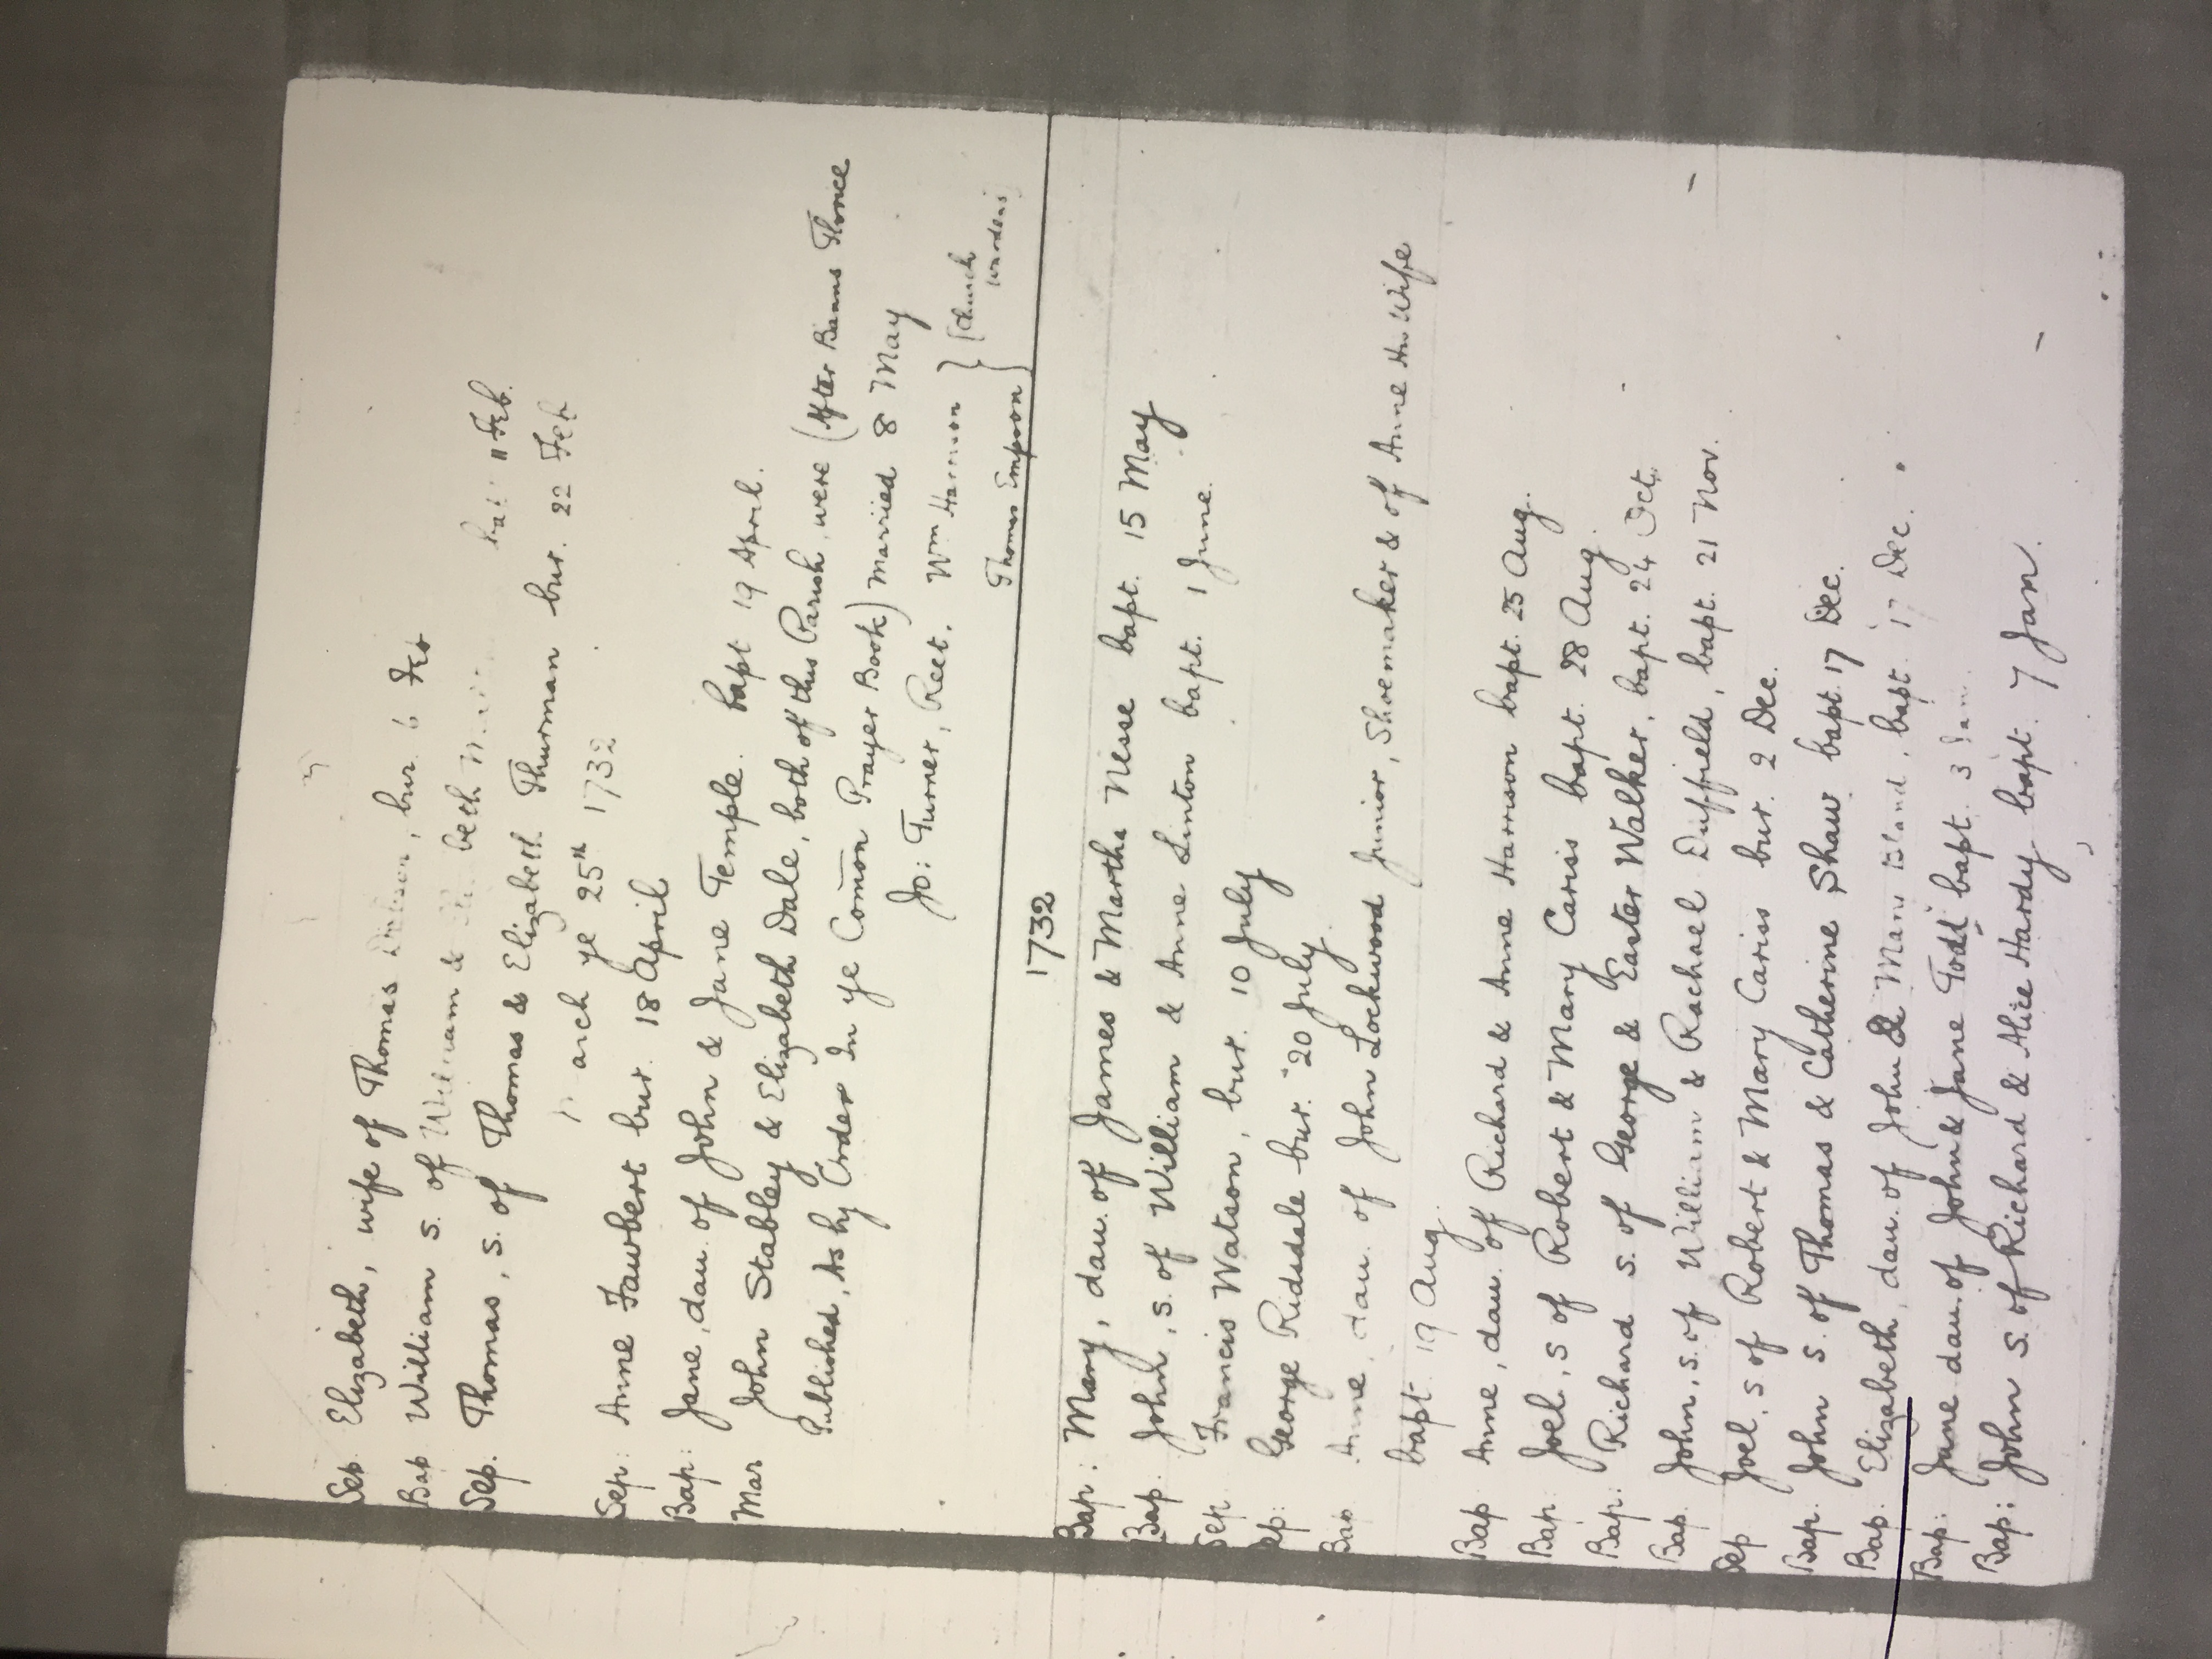 Sep. Elizabeth, wife of Thomas bur. 6 Feb
Bap William s. of William & beth bapt 11 Feb.
Sep. Thomas, s. of Thomas & Elizabeth Thurman bur. 22 Feb
arch ye 25th 1732
Sep: Anne Fawbert bur. 18 April
Bap: Jane, dau. of John & Jane Temple. bapt 19 April.
Mar John Stabley & Elizabeth Dale, both of this Parish, were (After Banns Thrice
Published, As by Order In ye Comōn Prayer Book) married 8 May
Jo: Turner, Rect. Wm Harrison } [Church
Thomas Empson } wardens]
1732
Bap: Mary, dau. of James & Martha Nesse bapt. 15 May
Bap. John, s. of William & Anne Linton bapt. 1 June.
Sep Francis Watson, bur. 10 July
ep: George Ridsdale bur. 20 July
Bap Anne, dau. of John Lockwood Junior, Shoemaker & of Anne His Wife
bapt. 19 Aug.
Bap Anne, dau. of Richard & Anne Harrison bapt. 25 Aug.
Bap Joel, s of Robert & Mary Cariss bapt. 28 Aug.
Bap: Richard s. of George & Easter Walker, bapt. 24 Oct.
Bap John, s. of William & Rachael Duffield, bapt. 21 Nov.
Sep Joel, s of Robert & Mary Cariss bur. 2 Dec.
Bap. John s. of Thomas & Catherine Shaw bapt. 17 Dec.
Bap: Elizabeth, dau. of John & Mary Bland, bapt. 17 Dec.
Bap: Jane dau. of John & Jane Todd bapt. 3 Jan.
Bap: John s. of Richard & Alice Hardy bapt. 7 Jan.